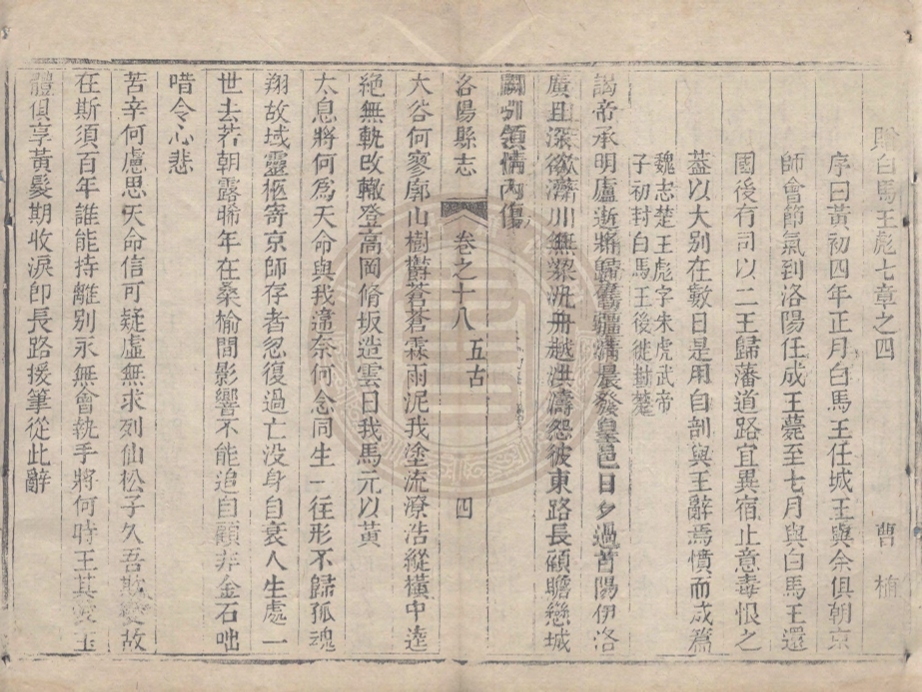 贈白馬王彪七章之四　曹植
序曰黃初四年正月白馬王任城王與余俱朝京
師會節氣到洛陽任成王薨至七月與白馬王還
國後有司以二王歸藩道路宜異宿止意毒恨之
葢以大别在數日是用自剖與王辭焉憤而成篇
魏志楚王彪字朱虎武帝
子初封白馬王後徙封楚
謁帝承明廬逝將歸舊疆清晨發皇邑日夕過首陽伊洛
廣且深欲濟川無梁汎舟越洪濤怨彼東路長顧瞻戀城
闕引領情內傷
洛陽縣志　卷之十八　五古　四
大谷何寥廓山樹欝蒼蒼霖雨泥我塗流潦浩縱橫中逵
絕無軌改轍登高岡脩坂造雲日我馬元以黃
太息將何爲天命與我違奈何念同生一往形不歸孤魂
翔故域靈柩寄京師存者忽復過亡没身自衰人生處一
世去若朝露晞年在桑榆間影響不能追自顧非金石咄
唶令心悲
苦辛何慮思天命信可疑虛無求列仙松子久吾欺變故
在斯須百年誰能持離别永無會執手將何時王其愛玉
體俱享黃髮期收淚即長路援筆從此辭